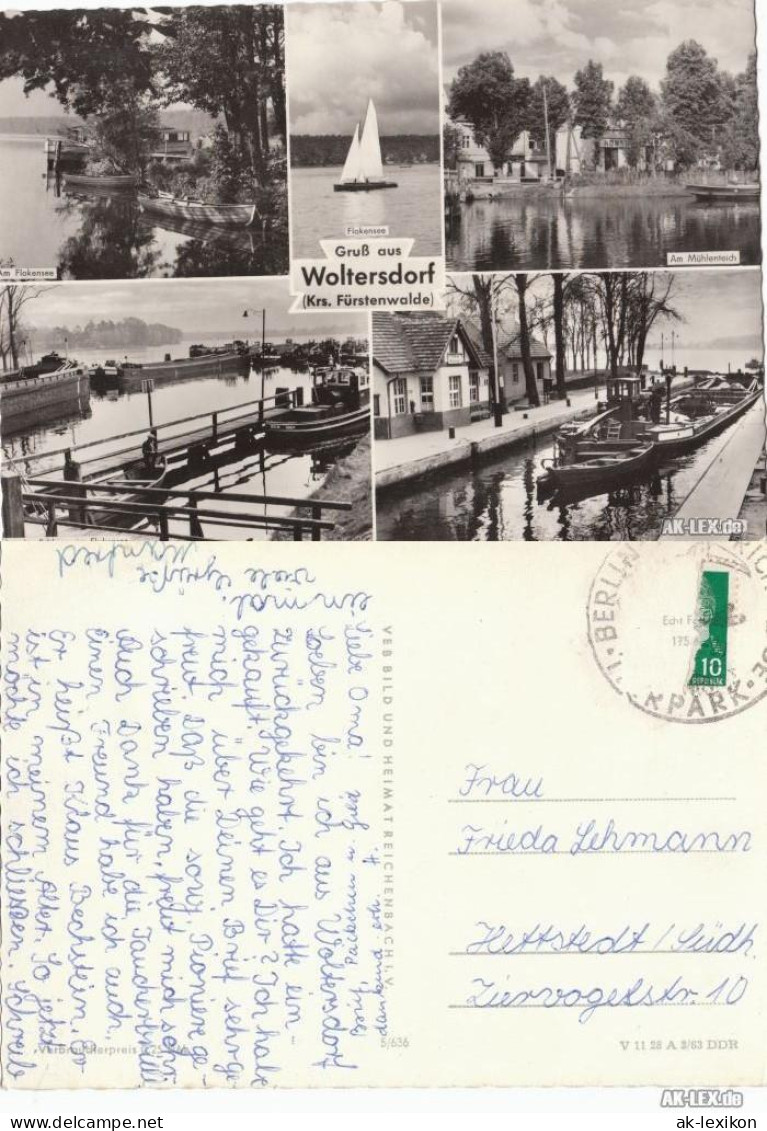 Am Flakensee
Flakensee
Am Mühlenteich
Gruß aus
Woltersdorf
(Krs. Fürstenwalde)
AK-LEX.de
Manfred
viele Grüße
einmal
Liebe Oma!
Soeben bin ich aus Woltersdorf
zurückgekehrt. Ich hatte ein
gekauft. Wie geht es Dir? Ich habe
mich über Deinen Brief sehr ge-
freut. Daß die sowj. Pioniere ge-
schrieben haben, freut mich sehr
Auch Dank für die
Einen Freund habe ich auch.
Er heißt Klaus Bechstein. Er
ist in meinem Alter. So jetzt
möchte ich schließen. Schreibe
Brief, u.
dankend erh.
VEB BILD UND HEIMAT REICHENBACH i. V.
BERLIN
PARK
10
REPUBLIK
Frau
Frieda Lehmann
Hettstedt / Südh.
Ziervogelstr. 10
Verbraucherpreis
5/636
V 11 28 A 3/63 DDR
AK-LEX.de
www.delcampe.net
ak-lexikon